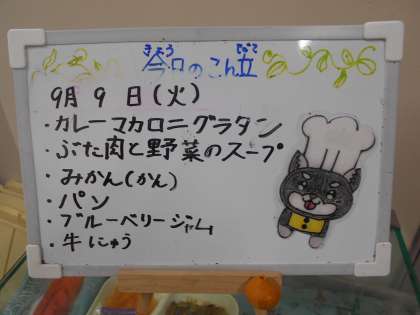 今日のこん立
きょう だて
9月9日(火)
・カレーマカロニグラタン
・ぶた肉と野菜のスープ
・みかん(かん)
・パン
・ブルーベリージャム
・牛にゅう